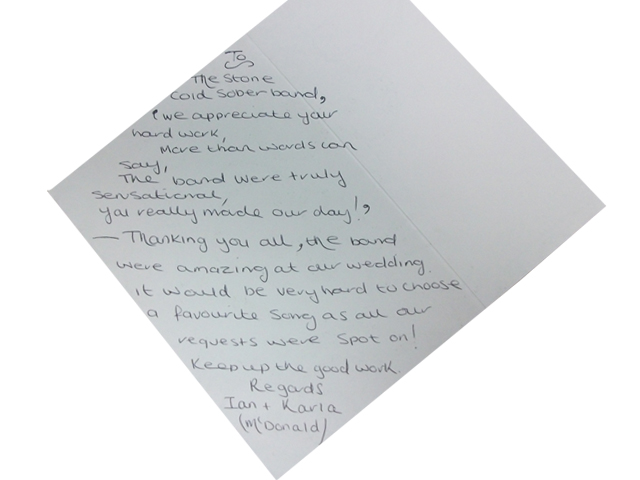 To
The Stone
Cold Sober band,
"we appreciate your
hard work,
More than words can
say,
The band were truly
sensational,
you really made our day!,
— Thanking you all, the band
were amazing at our wedding.
it would be very hard to choose
a favourite song as all our
requests were spot on!
Keep up the good work.
Regards
Ian + Karla
(McDonald)